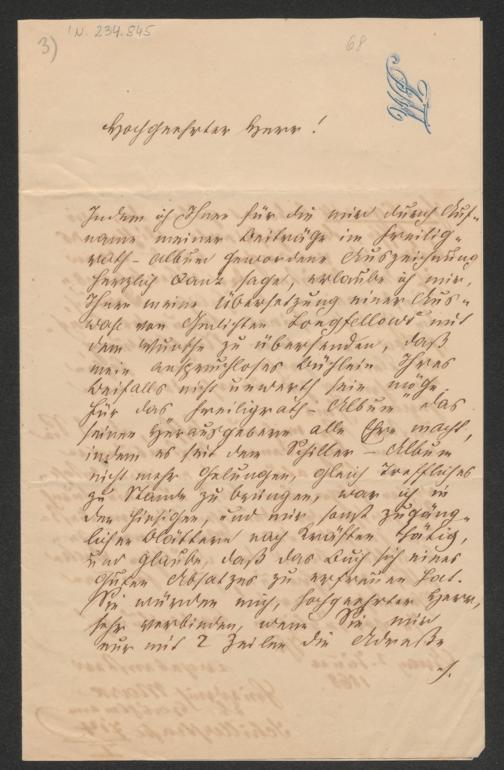 3)
I.N. 234.845
68
Hochgeehrter Herr!
Indem ich Ihnen für die mir durch Auf-
name meiner Beiträge im Freilig-
rath-Album gewordene Auszeichnung
herzlich Dank sage, erlaube ich mir,
Ihnen meine Übersetzung einer Aus-
wal von Gedichten Longfellows mit
dem Wunsche zu übersenden, daß
mein anspruchloses Büchlein Ihres
Beifalls nicht unwerth sein möge.
Für das Freiligrath-Album das
seinen Herausgebern alle Ehre macht,
indem es seit dem Schiller-Album
nicht mehr gelungen, gleich Treffliches
zu Stande zu bringen, war ich in
den hiesigen, und mir sonst zugäng-
lichen Blättern nach Kräften thätig,
und glaube, daß das Buch sich eines
guten Absatzes zu erfreuen hat.
Sie würden mich, hochgeehrter Herr,
sehr verbinden, wenn Sie mir
nur mit 2 Zeilen die Adresse